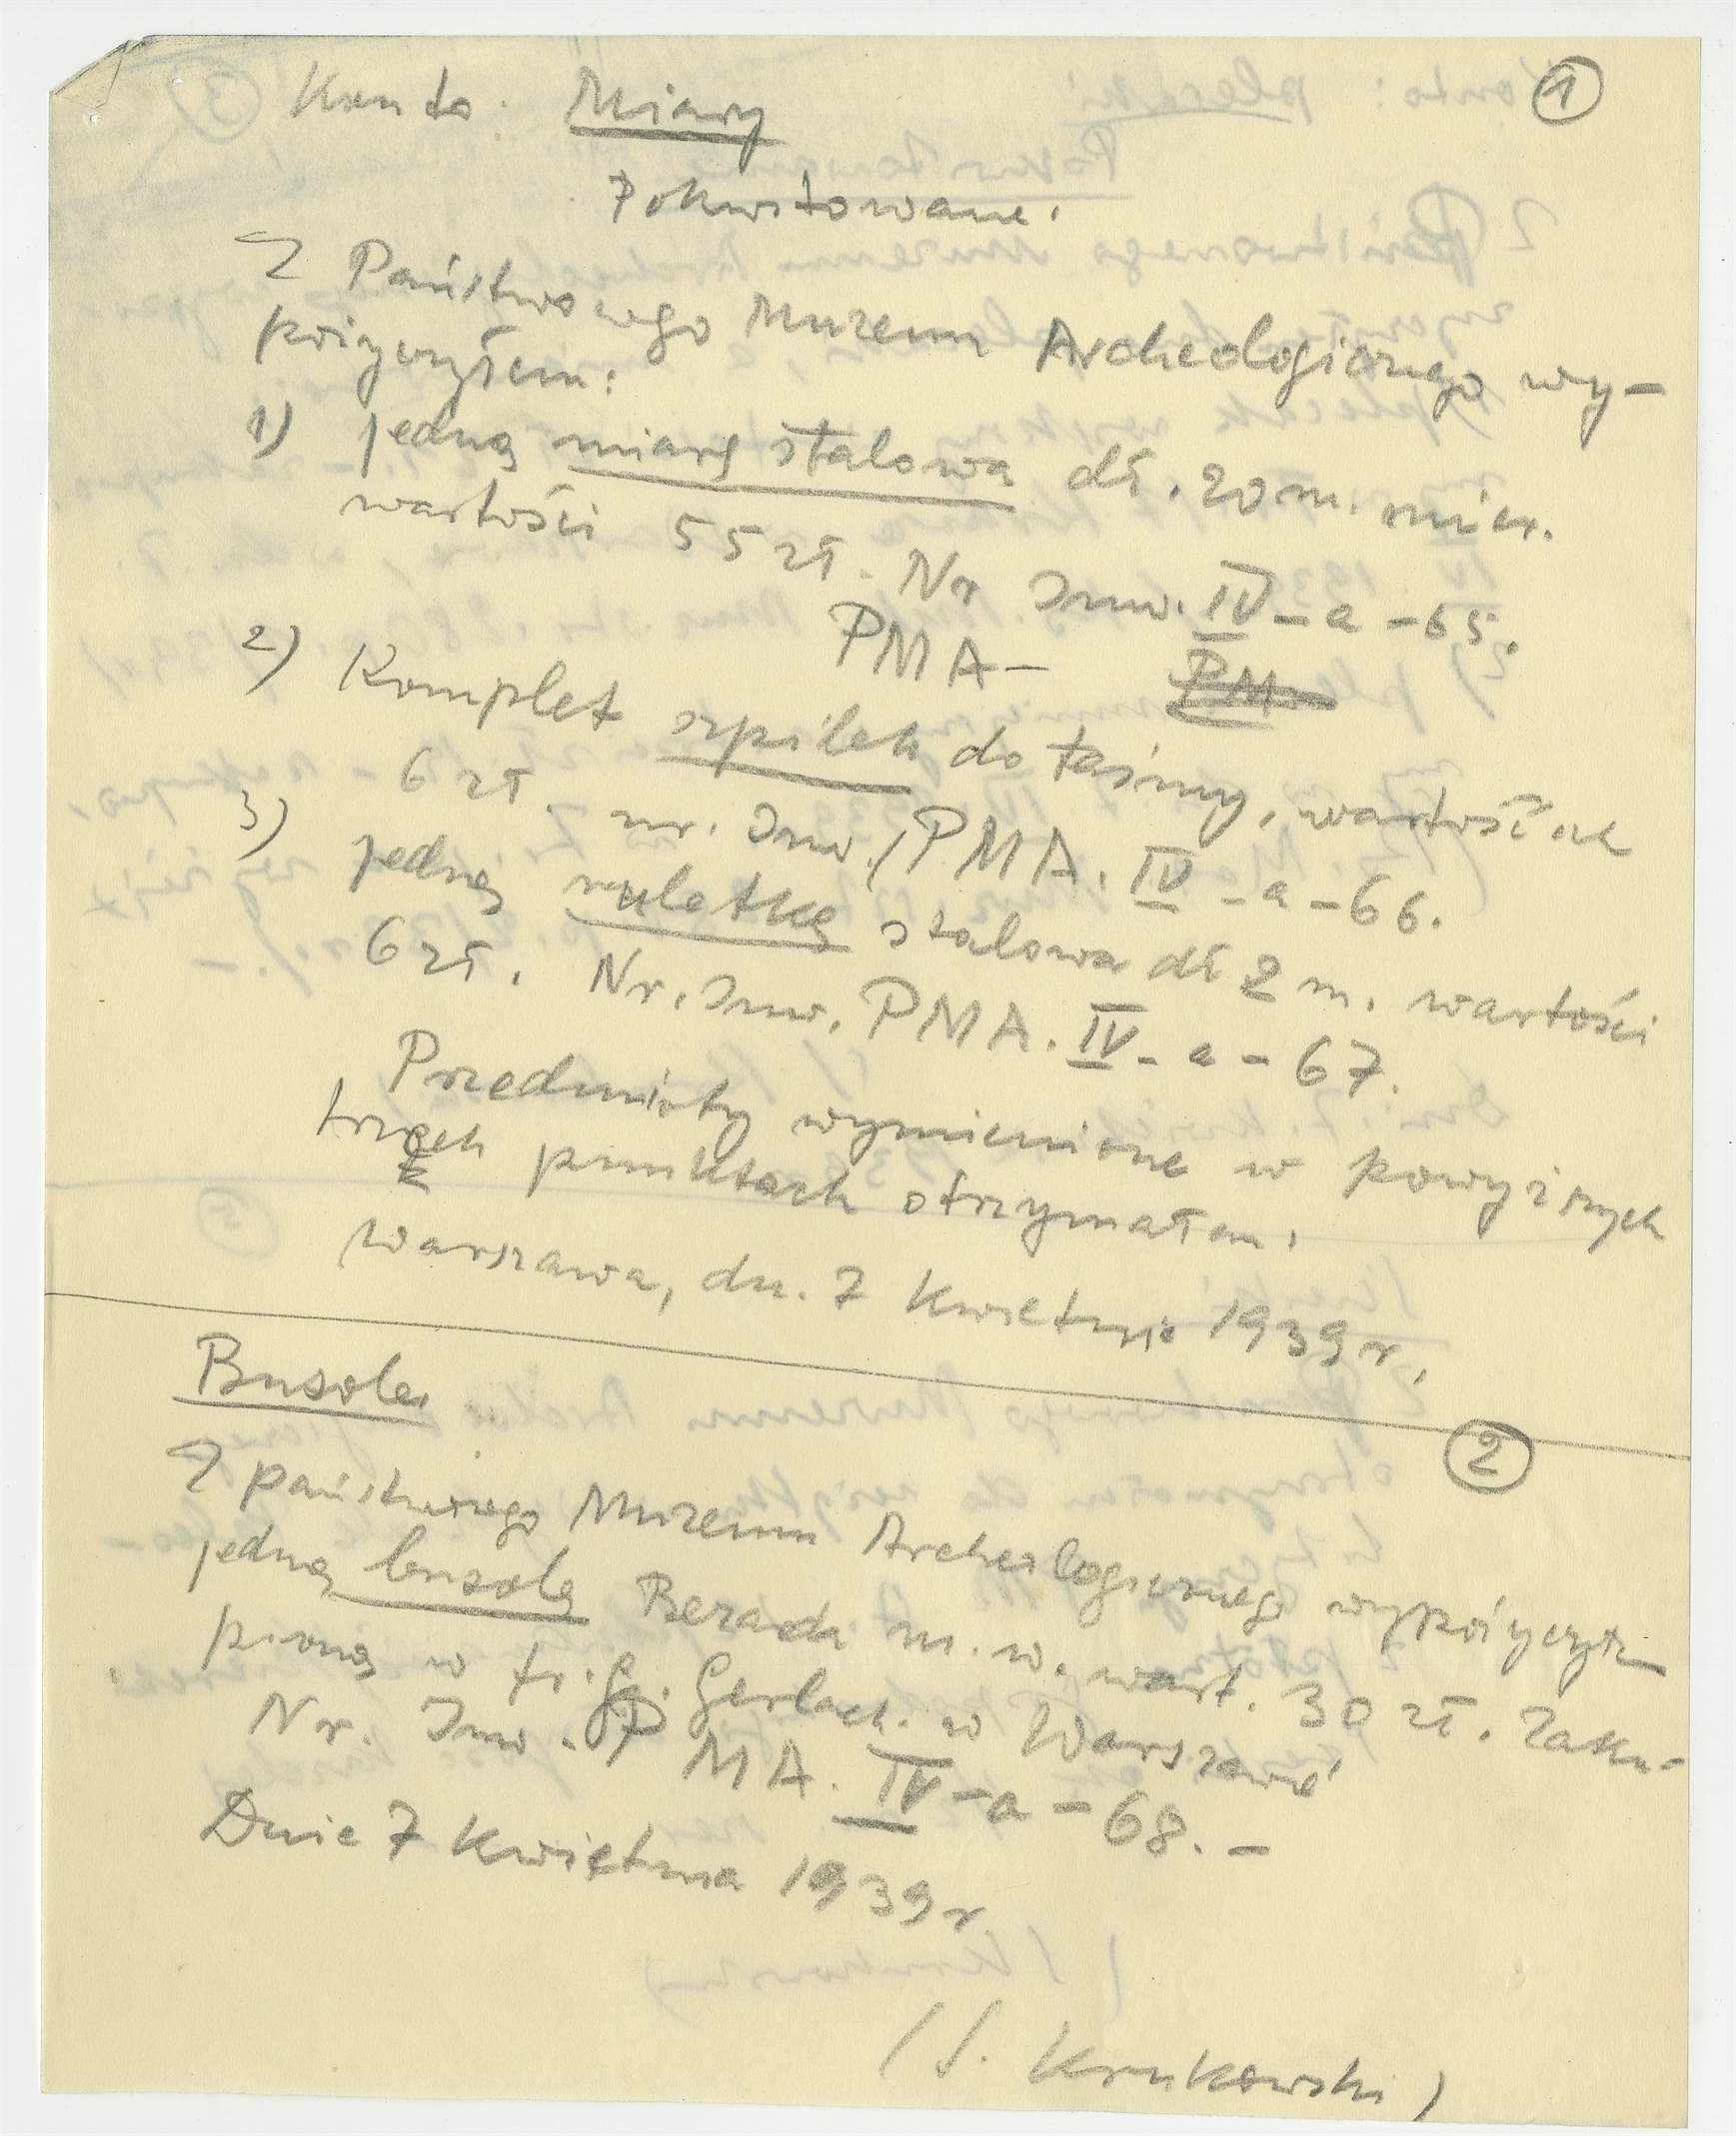 1
Konto: Miary
Pokwitowanie.
Z Państwowego Muzeum Archeologicznego wy-
pożyczyłem:
1) jedną miarę stalową dł. 20 m. mier.
wartości 55 zł. Nr Inw. IV-a-65.
PMA- PM
2) Komplet szpilek do taśmy, wartości
6 zł. nr. Inw. PMA. IV-a-66.
3) jedną ruletkę stalowa dł 2 m. wartości
6 zł. Nr. Inw. PMA. IV-a-67.
Przedmioty wymienione w powyższych
trzech punktach otrzymałem.
Warszawa, dn. 7 Kwietnia 1939 r.
Busola
2
Z państwowego Muzeum Archeologicznego wypożyczyłem
jedną busolę Bezard m. w. wart. 30 zł. Zaku-
pioną w fr. G. Gerlach. w Warszawie
Nr. Inw. PMA. IV-a-68.-
Dnia 7 Kwietnia 1939 r.
(S. Krukowski)